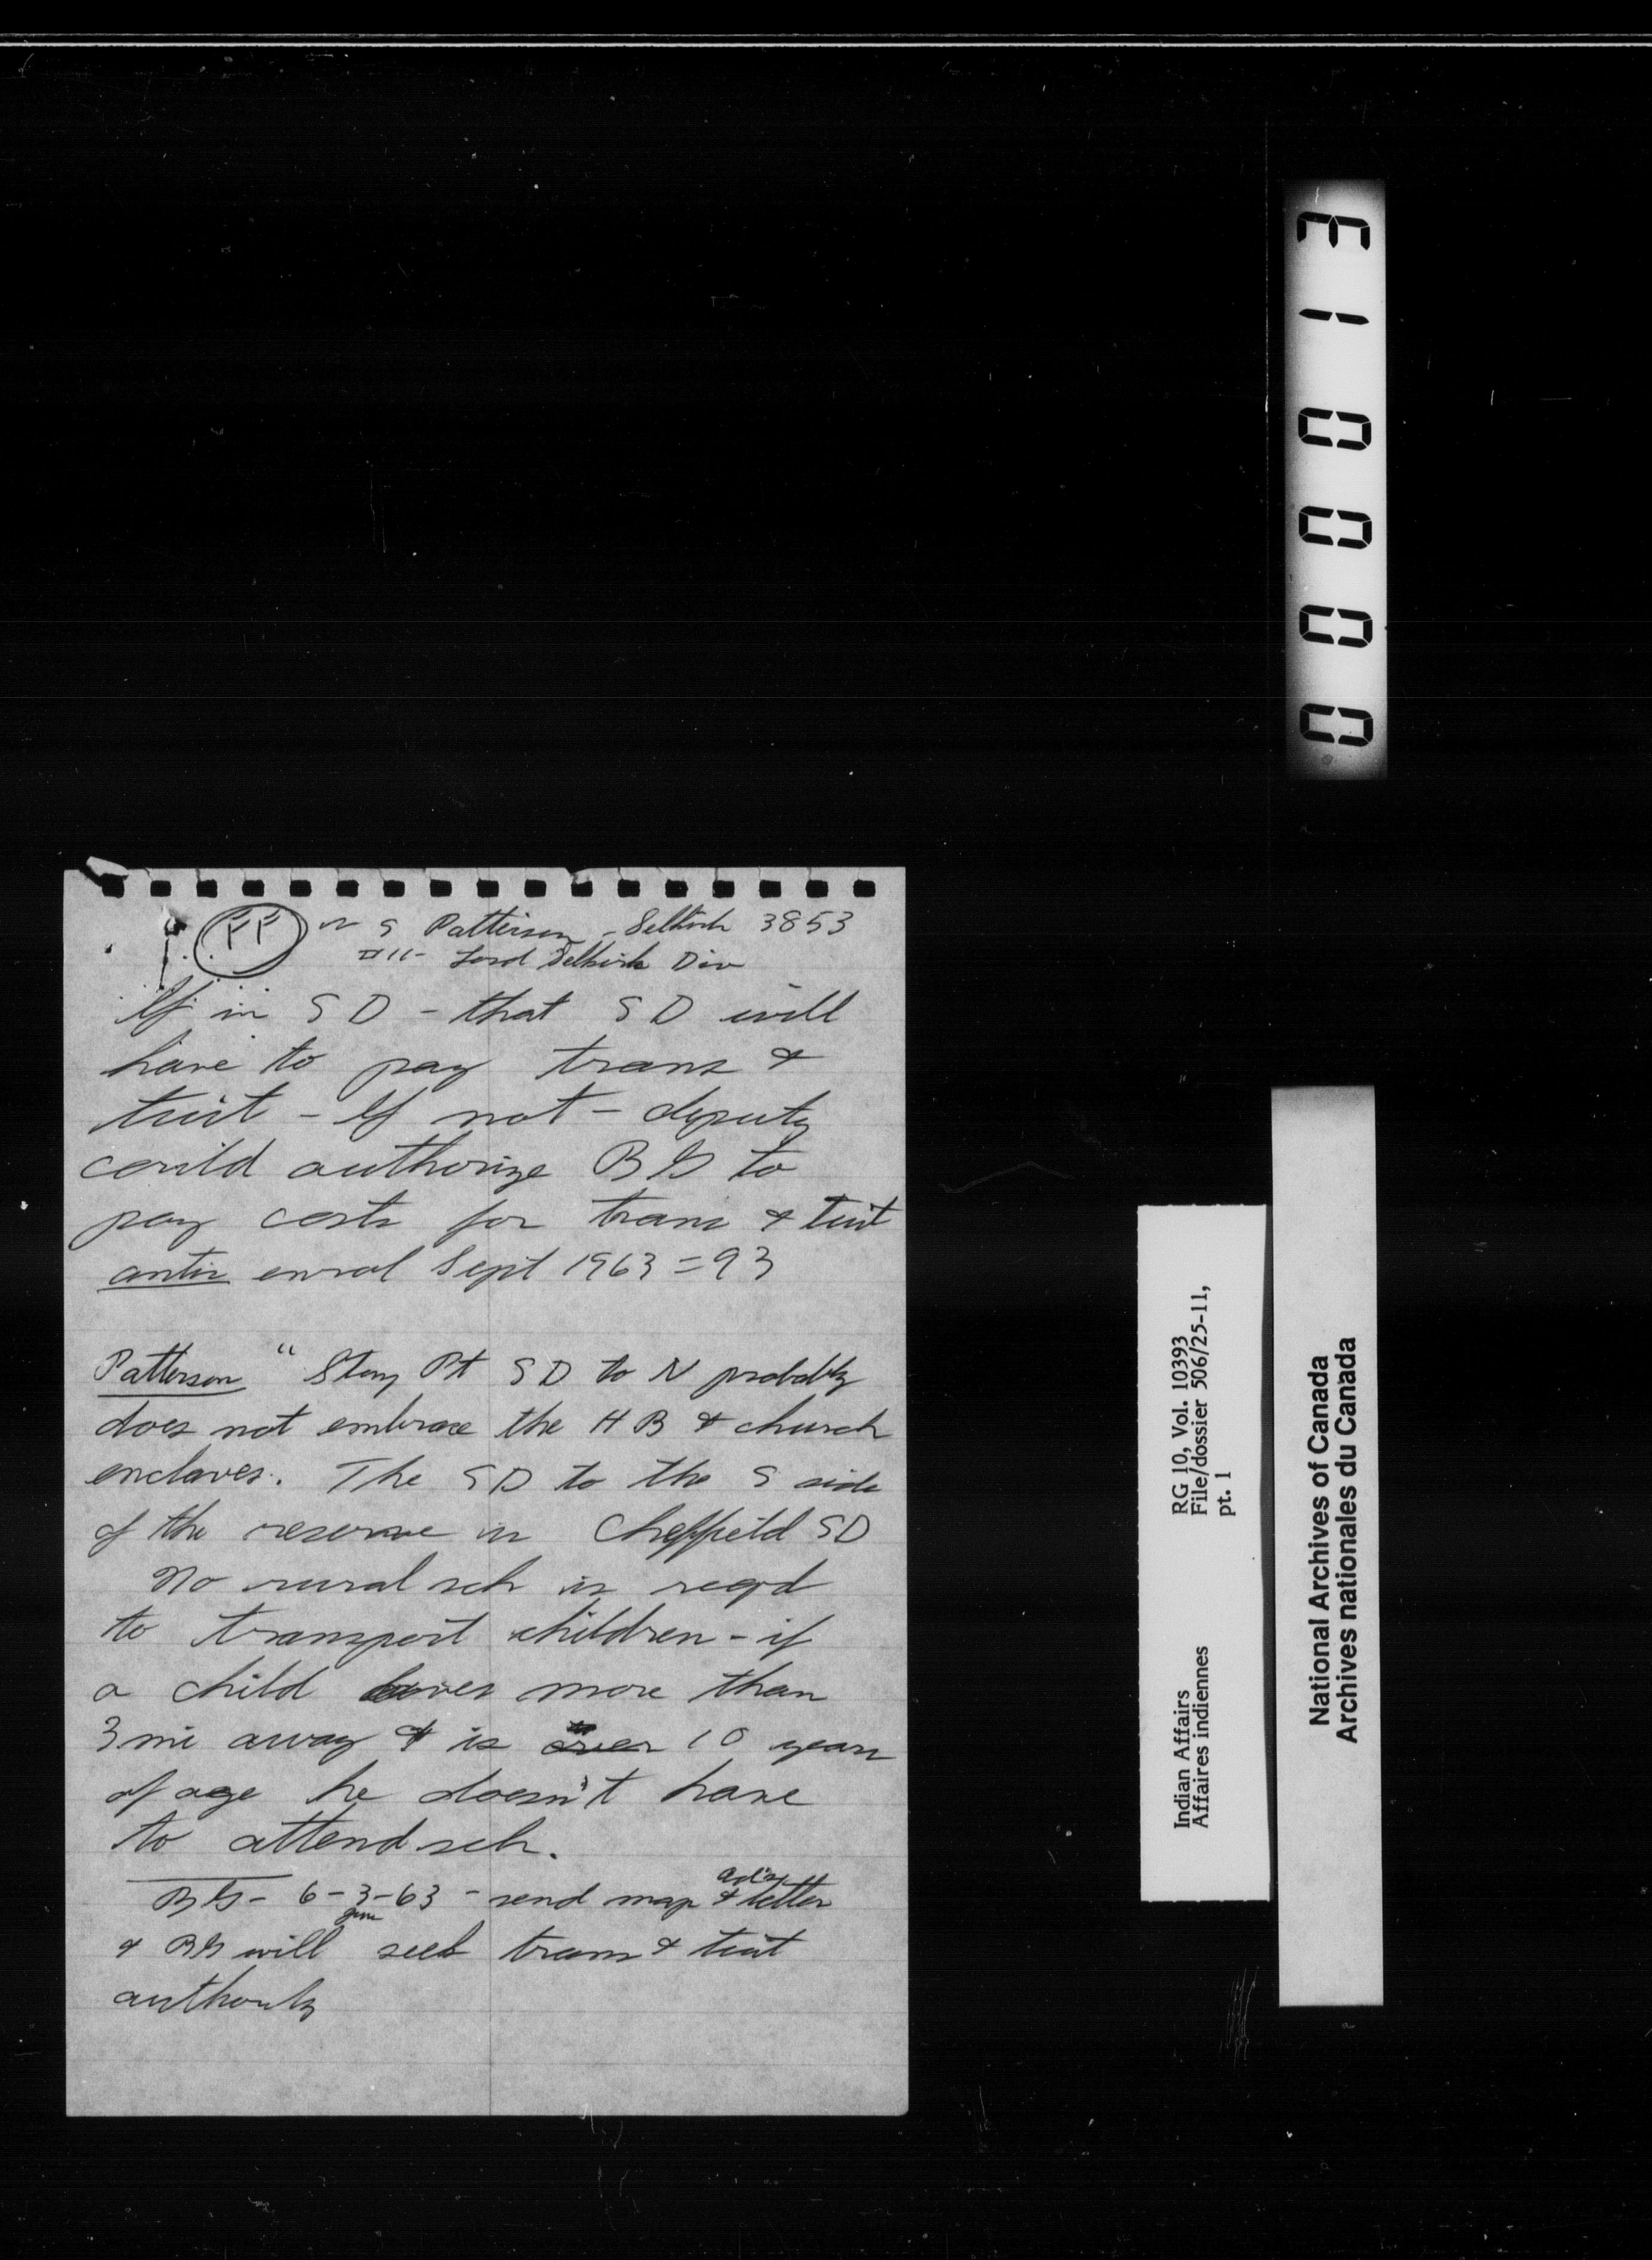 PP N S Patterson - Selkirk 3853
#11 - Lord Selkirk Div
If in S D - that S D will
have to pay trans &
tuit - If not - deputy
could authorize BG to
pay costs for trans & tuit
antic enrol Sept 1963 = 93
Patterson " Stony Pt SD to N probably
does not embrace the H B & church
enclaves. The SD to the S side
of the reserve is Cheffield SD
No rural sch is reqd
to transport children - if
a child lives more than
3 mi away & is 10 years
of age he doesn't have
to attend sch.
BG - 6-3-63 - send map & letter
June
& BG will seek trans & tuit
authority
000013
RG 10, Vol. 10393
File/dossier 506/25-11,
pt. 1
Indian Affairs
Affaires indiennes
National Archives of Canada
Archives nationales du Canada